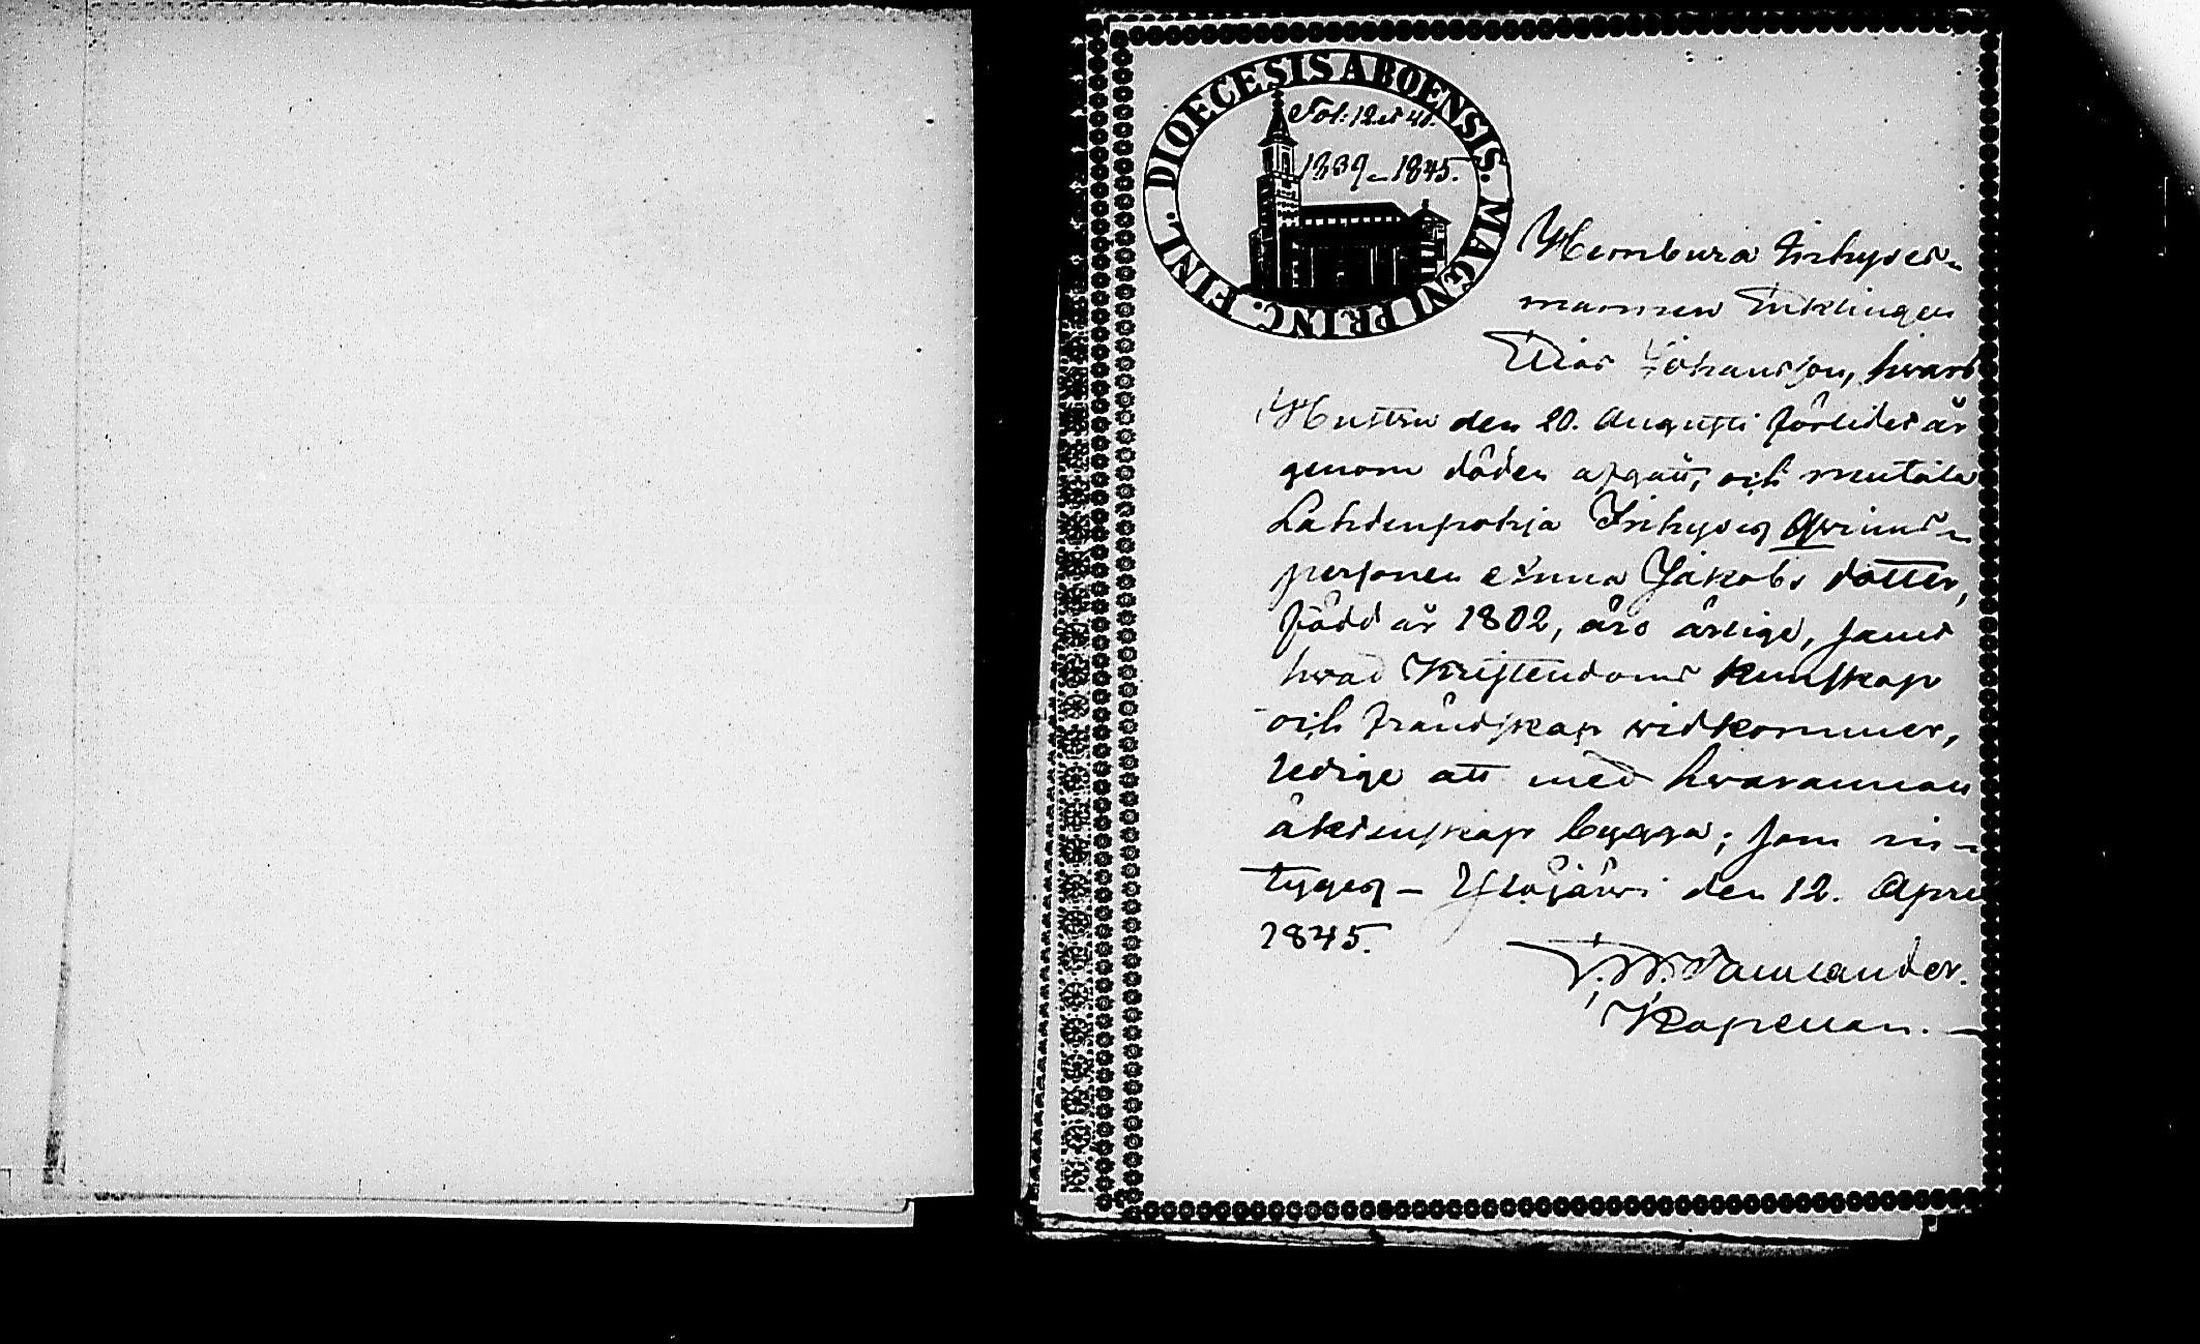 DIOECESIS ABOENSIS. MAGNI PRINC. FINL.
Fol: 12 et 41.
1839–1845.
Hembura Inhyses-
mannen Enklingen
Elias Johansson, hvars
Hustru den 20. Augusti förlidet år
genom döden afgått, och mutala
Lahdenpohja Inhyses Qvinns-
personen Anna Jakobs dotter,
född år 1802, äro ärlige, samt
hvad Kristendoms kunskap
och frändskap widkommer,
ledige att med hvarannan
äktenskap bygga; som in-
tyges – Ylöjärvi den 12. April
1845.
Kapellan. –